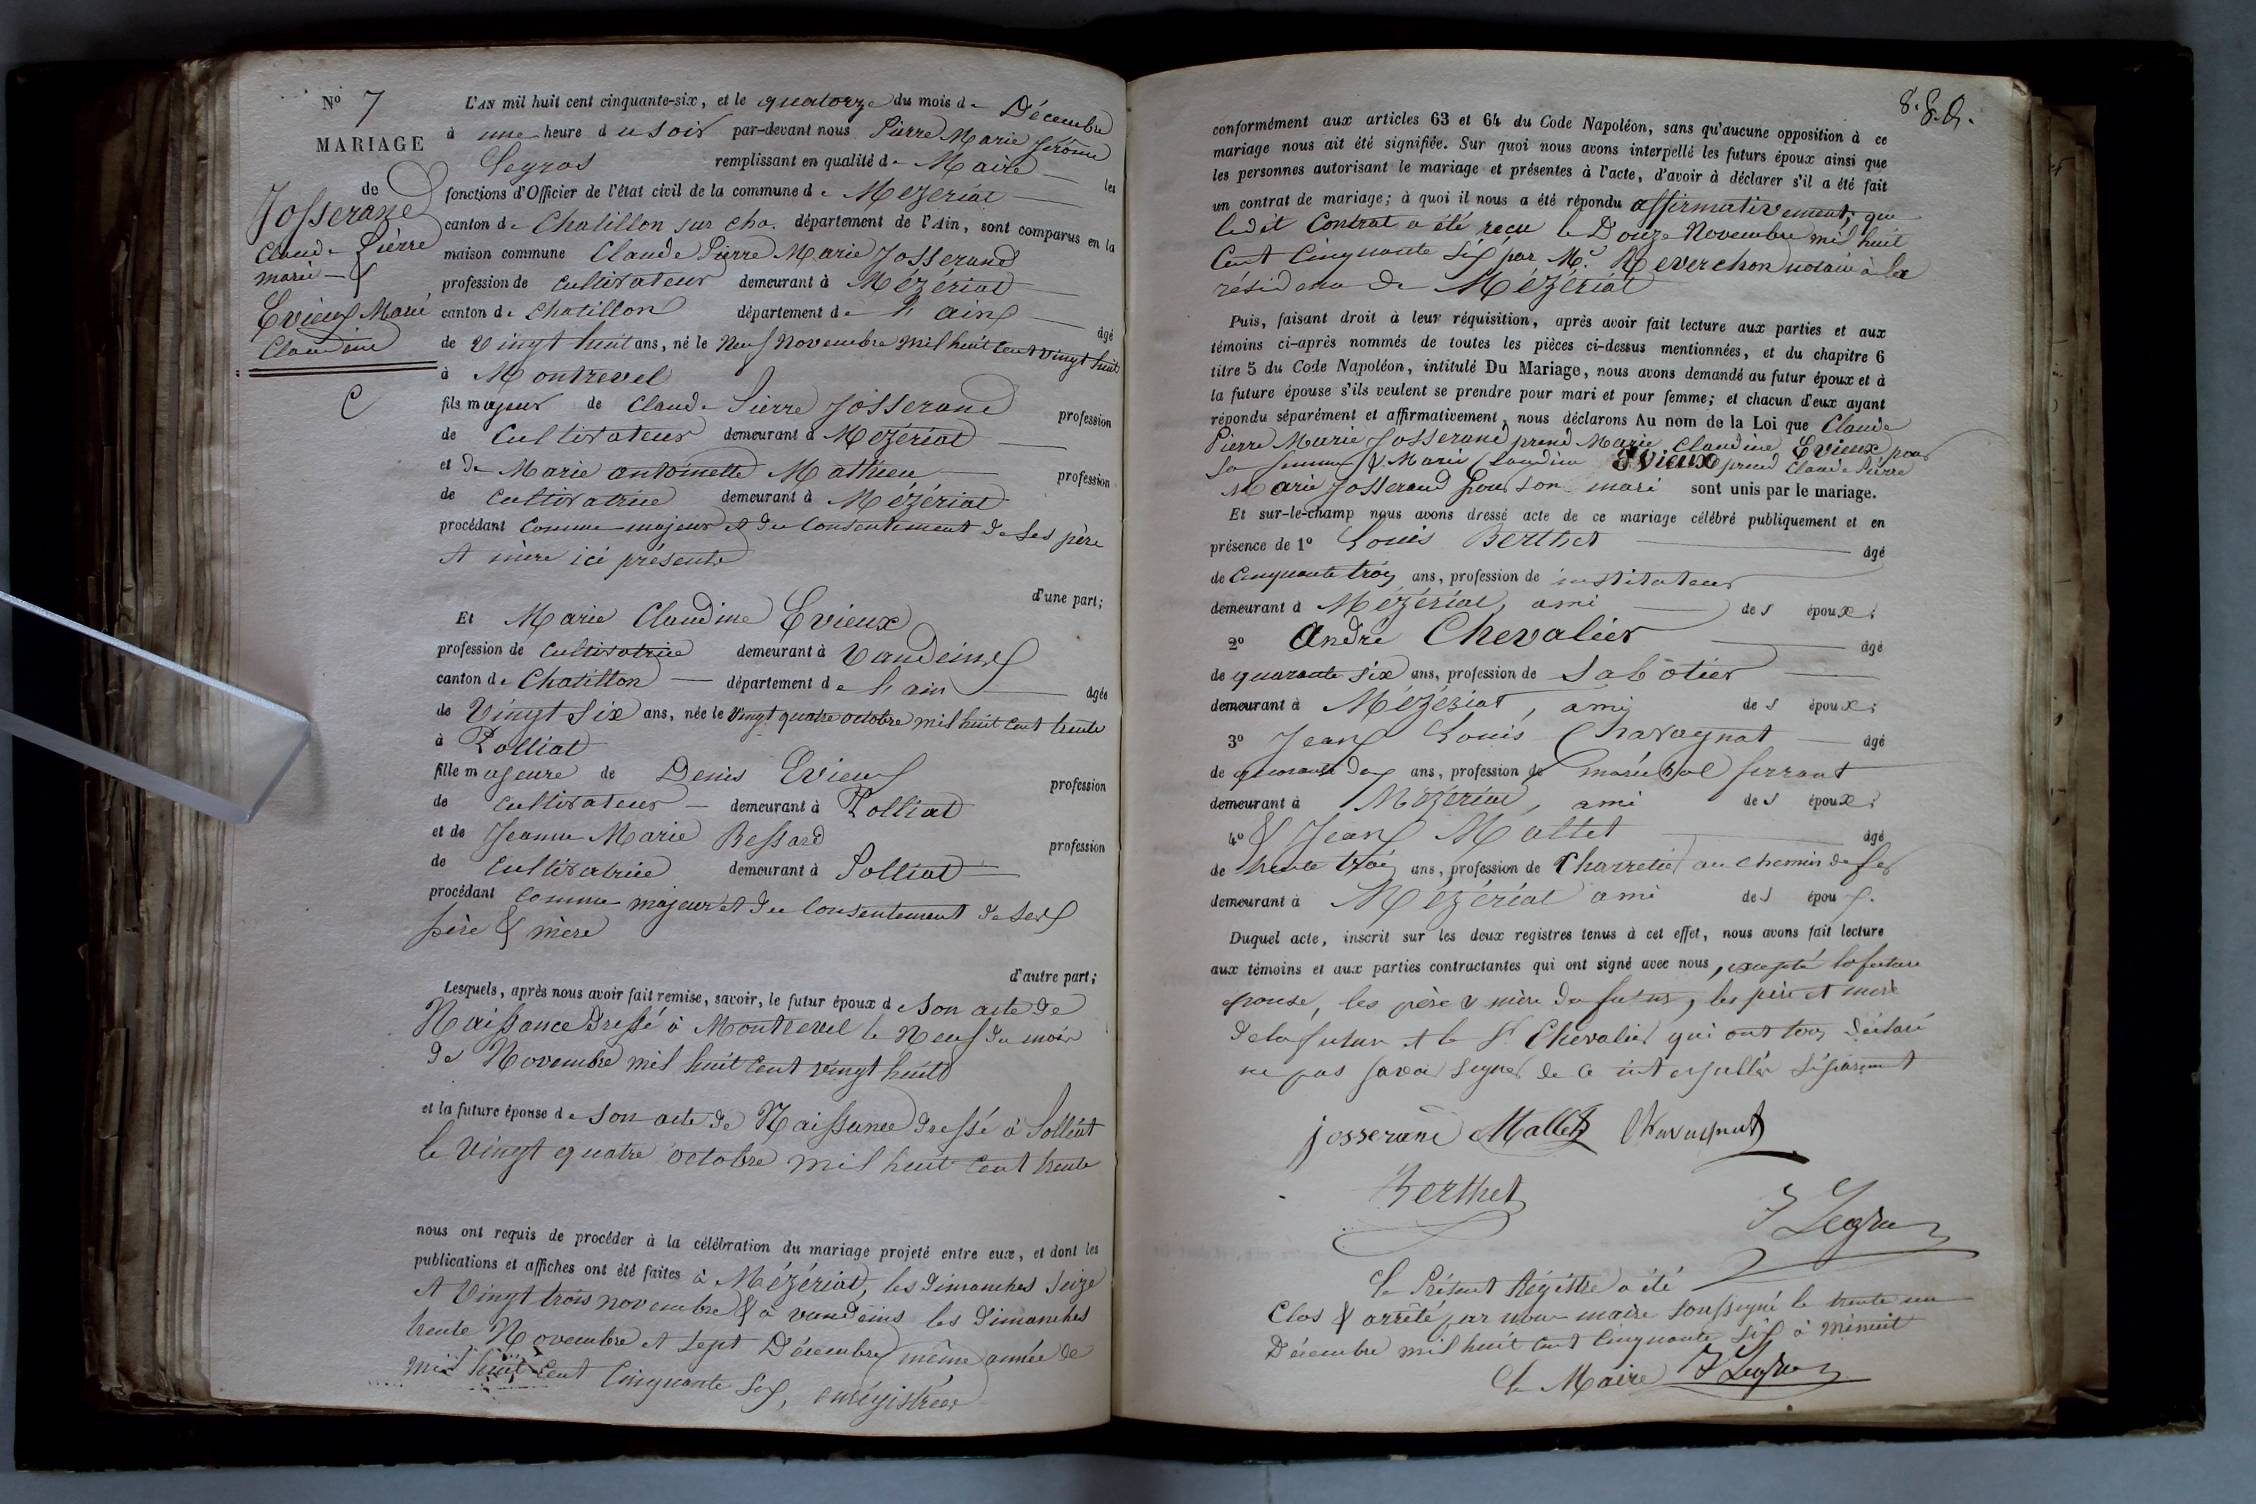 No 7
MARIAGE
de
Josserand
Claude Pierre
marie &
Evieux Marie
Claudine
C
L'AN mil huit cent cinquante-six, et le quatorze du mois de Décembre
à une heure du soir par-devant nous Pierre Marie Jérôme
Legros remplissant en qualité de Maire les
fonctions d'Officier de l'état civil de la commune de Mezeriat
canton de Chatillon sur cha. département de l'Ain, sont comparus en la
maison commune Claude Pierre Marie Josserand
profession de cultivateur demeurant à Mézériat
canton de Chatillon département de l'ain âgé
de vingt huit ans, né le neuf novembre mil huit cent vingt huit
à Montrevel
fils majeur de Claude Pierre Josserand profession
de Cultivateur demeurant à Mézériat
et de Marie antoinette Mathieu profession
de cultivatrice demeurant à Mézériat
procédant comme majeur et du consentement de ses père
et mère ici présents
d'une part;
Et Marie Claudine Evieux
profession de cultivatrice demeurant à Vandeins
canton de Chatillon département de l'ain âgée
de Vingt six ans, née le vingt quatre octobre mil huit cent trente
à Polliat
fille majeure de Denis Evieux profession
de cultivateur demeurant à Polliat
et de Jeanne Marie Bessard profession
de cultivatrice demeurant à Polliat
procédant comme majeur et du consentement de ses
père & mère
d'autre part;
Lesquels, après nous avoir fait remise, savoir, le futur époux de son acte de
Naissance dressé à Montrevel le Neuf du mois
de Novembre mil huit cent vingt huit
et la future épouse de son acte de Naissance dressé à Polliat
le vingt quatre octobre mil huit cent trente
nous ont requis de procéder à la célébration du mariage projeté entre eux, et dont les
publications et affiches ont été faites à Mézériat, les dimanches seize
et Vingt trois novembre & à vandeins les dimanches
trente Novembre et sept Décembre même année de
mil huit cent cinquante six, enrégistrées
conformément aux articles 63 et 64 du Code Napoléon, sans qu'aucune opposition à ce
mariage nous ait été signifiée. Sur quoi nous avons interpellé les futurs époux ainsi que
les personnes autorisant le mariage et présentes à l'acte, d'avoir à déclarer s'il a été fait
un contrat de mariage; à quoi il nous a été répondu affirmativement; que
ledit Contrat a été reçu le Douze Novembre mil huit
cent cinquante six par Me. Reverchon notaire à la
résidence de Mézériat
Puis, faisant droit à leur réquisition, après avoir fait lecture aux parties et aux
témoins ci-après nommés de toutes les pièces ci-dessus mentionnées, et du chapitre 6
titre 5 du Code Napoléon, intitulé Du Mariage, nous avons demandé au futur époux et à
la future épouse s'ils veulent se prendre pour mari et pour femme; et chacun d'eux ayant
répondu séparément et affirmativement, nous déclarons Au nom de la Loi que Claude
Pierre Marie Josserand prend Marie Claudine Evieux pour
sa femme & Marie Claudine Evieux prend Claude Pierre
Marie Josserand pour son mari sont unis par le mariage.
Et sur-le-champ nous avons dressé acte de ce mariage célébré publiquement et en
présence de 1º Louis Berthet âgé
de cinquante trois ans, profession de instituteur
demeurant à Mézériat, ami des époux;
2º André Chevalier âgé
de quarante six ans, profession de Sabôtier
demeurant à Mézériat, ami des époux;
3º Jean Louis Chavagnat âgé
de ans, profession de maréchal ferrant
demeurant à Mézériat, ami des époux;
4º & Jean Mallet âgé
de trente trois ans, profession de Charretier au chemin de fer
demeurant à Mézériat ami des époux.
Duquel acte, inscrit sur les deux registres tenus à cet effet, nous avons fait lecture
aux témoins et aux parties contractantes qui ont signé avec nous, excepté la future
épouse, les père & mère du futur, les père et mère
de la future et le Sr Chevalier qui ont tous déclaré
ne pas savoir signer de ce interpellés séparément
josserand Mallet Chavagnat
Berthet
J Legros
Le Présent Régistre a été
Clos & arrêté par nous maire soussigné le trente un
Décembre mil huit cent cinquante six à minuit
Le Maire J Legros